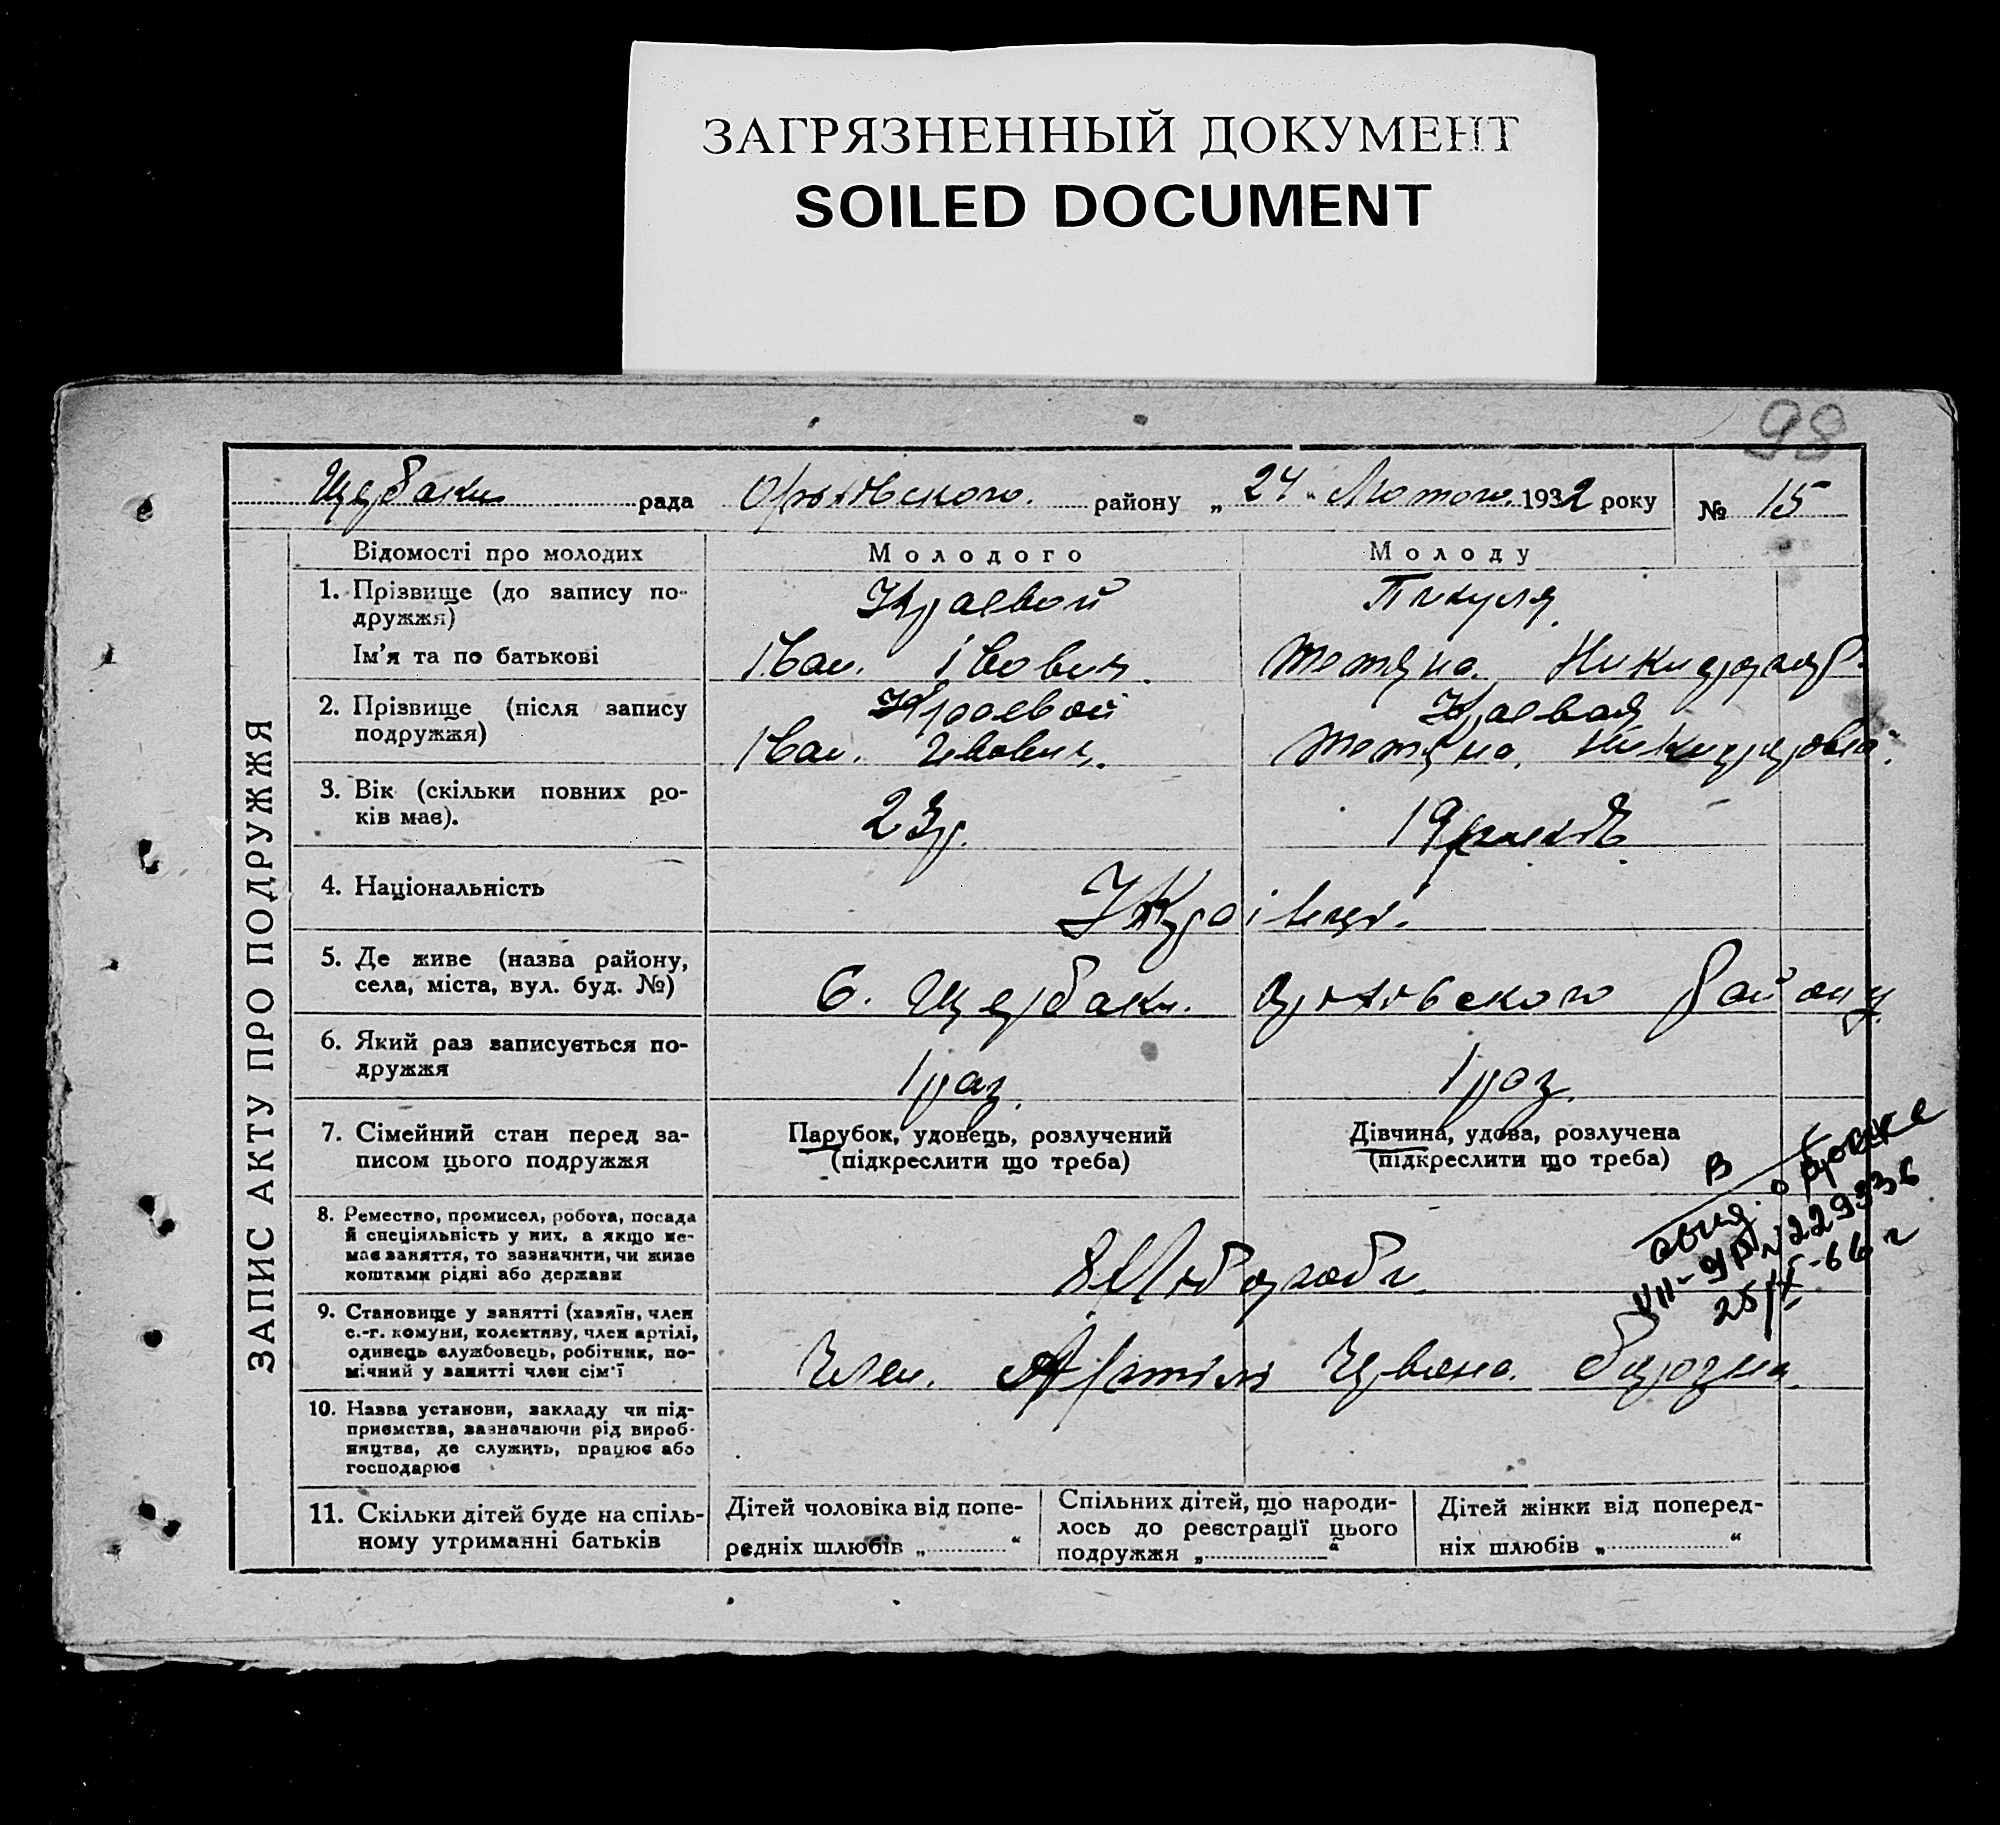 ЗАГРЯЗНЕННЫЙ ДОКУМЕНТ
SOILED DOCUMENT
98
Щербаки рада Оріхівского району „ 24 " Лютого 1932 року № 15
ЗАПИС АКТУ ПРО ПОДРУЖЖЯ
Відомості про молодих Молодого Молоду
1. Прізвище (до запису по- Краевой Пикуля
дружжя)
Ім'я та по батькові Іван. Івович. Тетяна.
2. Прізвище (після запису Краевой Краевая
подружжя) Іван. Ивович. Тетяна.
3. Вік (скільки повних ро- 23р. 19 років
ків має).
4. Національність Українці
5. Де живе (назва району, С. Щербаки. Оріхівского Району
села, міста, вул. буд. №)
6. Який раз записується по- 1 раз. 1 раз.
дружжя
7. Сімейний стан перед за- Парубок, удовець, розлучений Дівчина, удова, розлучена
писом цього подружжя (підкреслити що треба) (підкреслити що треба)
8. Ремество, промисел, робота, посада Хлібороби
й спеціяльність у них, а якщо не-
має заняття, то зазначити, чи живе
коштами рідні або держави
9. Становище у занятті (хазяїн, член Член. Артілі Червона.
с.-г. комуни, колективу, член артілі,
одинець службовець, робітник, по-
мічний у занятті член сім'ї
10. Назва установи, закладу чи під-
приємства, зазначаючи рід вироб-
ництва, де служить, працює або
господарює
11. Скільки дітей буде на спіль- Дітей чоловіка від попе- Спільних дітей, що народи- Дітей жінки від поперед-
ному утриманні батьків редніх шлюбів „ “ лось до реєстрації цього ніх шлюбів „ “
подружжя „ “
В
свид. о браке
VII-УР № 229336
25/X-66 г